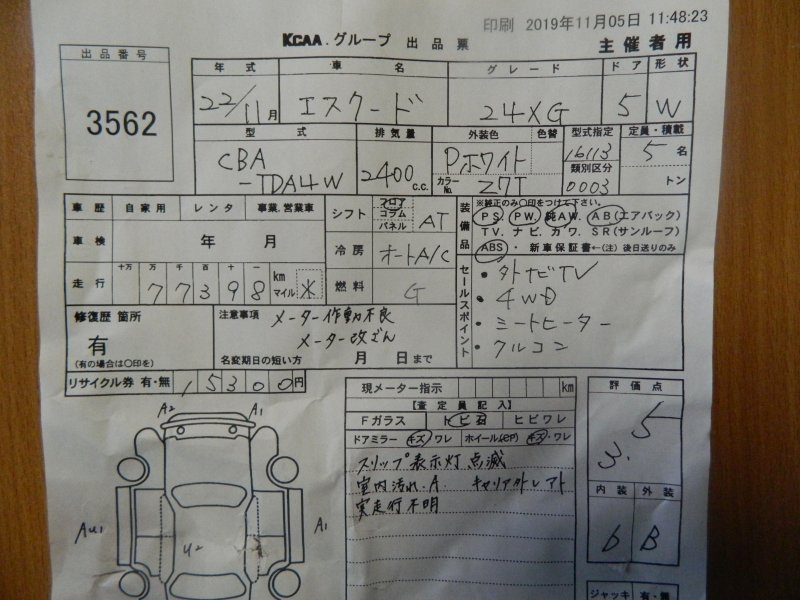 印刷 2019年11月05日 11:48:23
KCAA.グループ 出品票 主催者用
出品番号
3562
年式 車名 グレード ドア 形状
22/11月 エスクード 24XG 5 W
型式 排気量 外装色 色替 型式指定 定員・積載
CBA-TDA4W 2400c.c. Pホワイト 16113 5名
カラーNo. Z7T 類別区分 0003 トン
車歴 自家用 レンタ 事業.営業車
シフト フロア コラム パネル AT
装備品 ※純正のみ〇印をつけて下さい。
PS PW. 純AW. AB(エアバック)
TV. ナビ. カワ. SR(サンルーフ)
ABS. ・ 新車保証書←(注) 後日送りのみ
車検 年 月
冷房 オートA/C
走行 十万 万 千 百 十 一 km マイル
77398 ※
燃料 G
セールスポイント
・外ナビTV
・4WD
・ミートヒーター
・クルコン
修復歴 箇所
有
(有の場合は〇印を)
注意事項 メーター作動不良
メーター改ざん
名変期日の短い方 月 日まで
リサイクル券 有・無 15300円
現メーター指示 km
【査定員記入】
Fガラス トビ石 ヒビワレ
ドアミラー キズ/ワレ ホイール(cap) キズ・ワレ
スリップ表示灯 点滅
室内汚れ.A キャリア外レアト
実走行不明
評価点
3.5
内装 外装
b B
ジャッキ 有・無
A2 A1
AU1 U2 A1